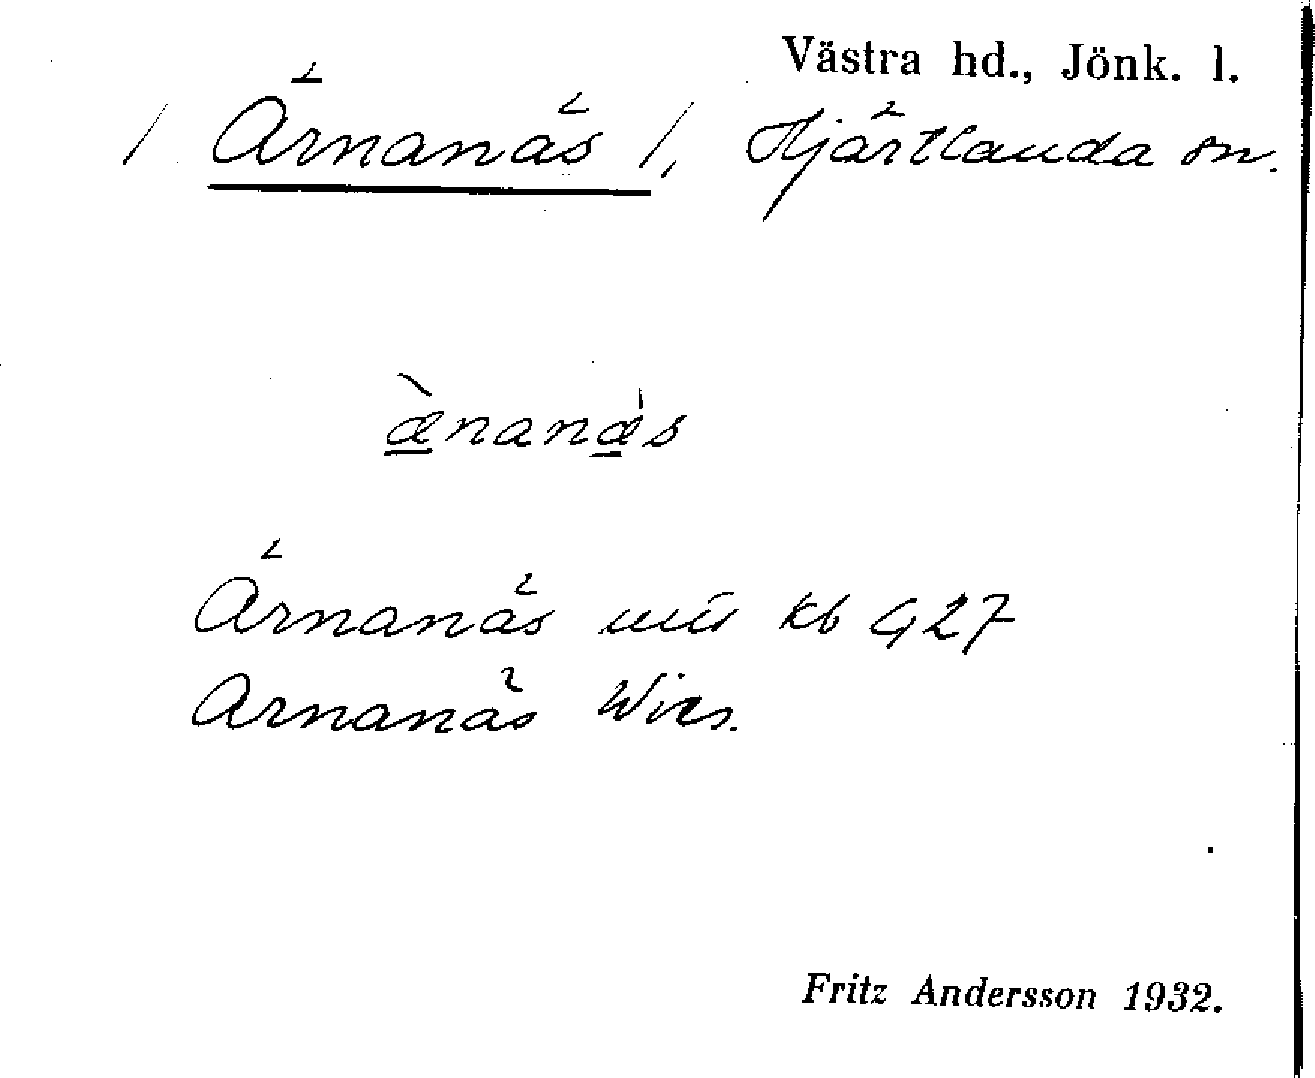 Västra hd., Jönk. l.
/ Ärnanäs /, Hjärtlanda sn.
æ̀nanæ̀s
Ärnanäs kb G27
Arnanäs Wies.
Fritz Andersson 1932.